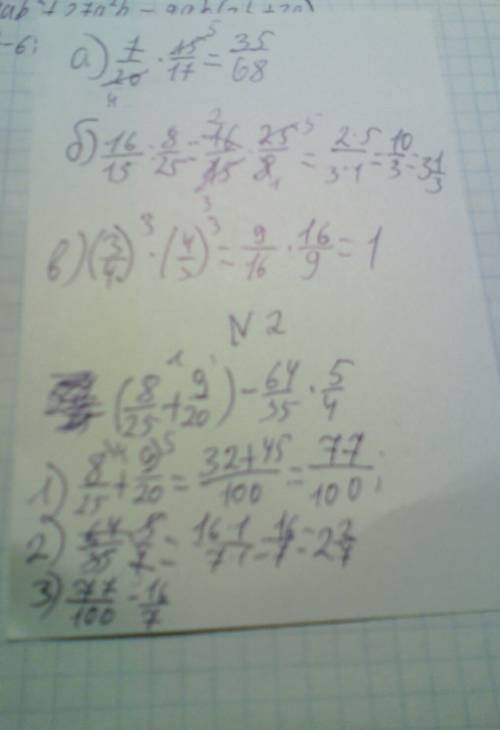 а) 7/20 · 15/17 = 35/68
б) 16/15 : 8/25 = 16/15 · 25/8 = 2·5/3·1 = 10/3 = 3 1/3
в) (3/4)³ · (4/3)³ = 9/16 · 16/9 = 1
N 2
(8/25 + 9/20) - 64/35 · 5/4
1) 8/25 + 9/20 = 32+45/100 = 77/100;
2) 64/35 · 5/4 = 16·1/7·1 = 16/7 = 2 2/7
3) 77/100 - 16/7